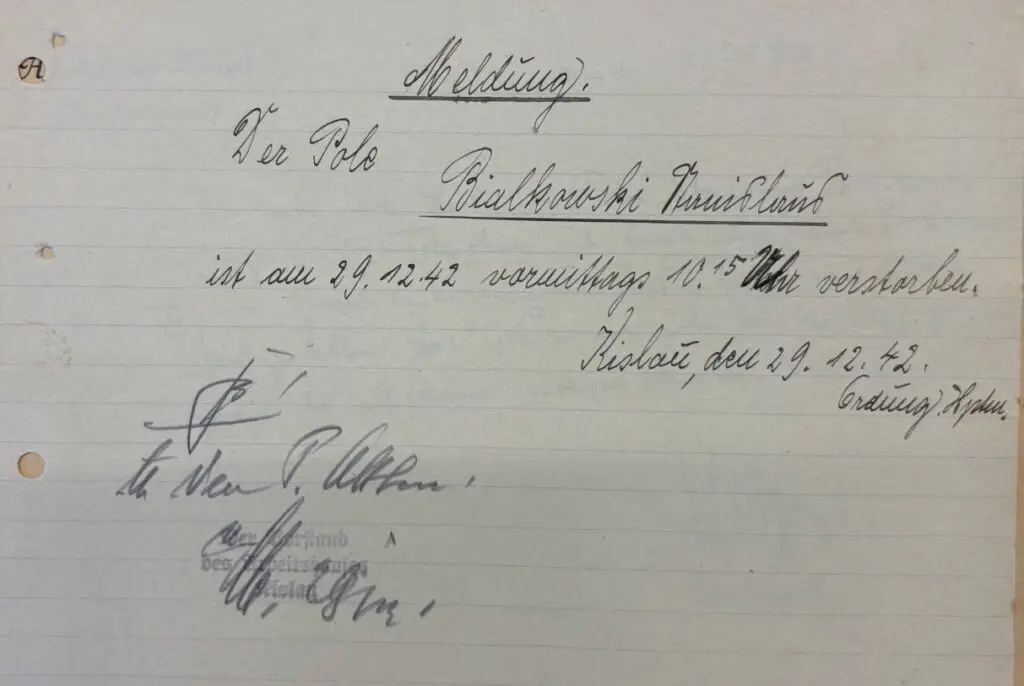 Meldung.
Der Pole
Bialkowski Stanislaus
ist am 29.12.42 vormittags 10.15 Uhr verstorben.
Kislau, den 29.12.42.
Hptm.
den P. Akten.
Der Vorstand
des Arbeitshauses
Kislau